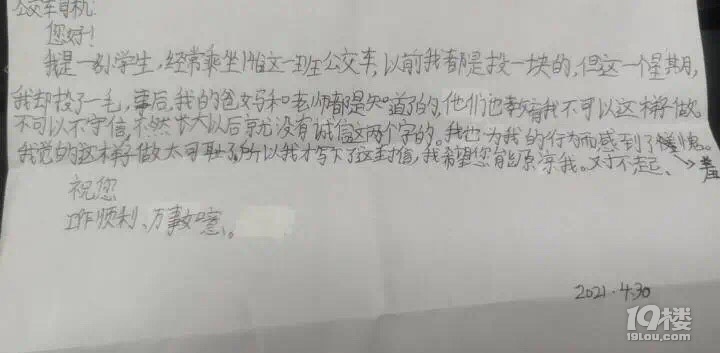 公交车司机:
您好!
我是一名小学生,经常乘坐146这一班公交车,以前我都是投一块的,但这一个星期,
我却投了一毛,事后,我的爸妈和老师都是知道了的,他们也教育我不可以这样子做。
不可以不守信,不然长大以后就没有诚信这两个字的。我也为我的行为而感到了愧。
我觉的这样子做太可耻了,所以我才写下了这封信,我希望您能原凉我。对不起、
羞
祝您
工作顺利、万事如意。
2021.4.30
19楼
19lou.com